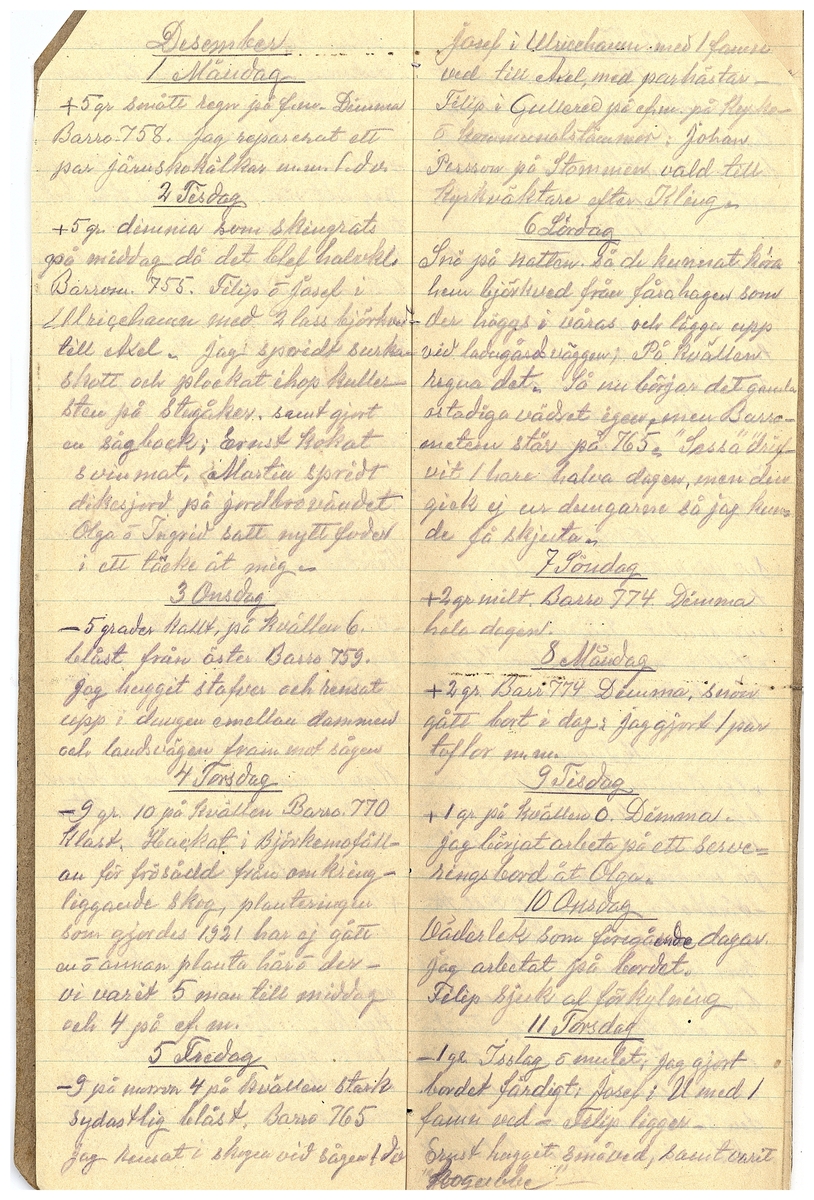 Desember
1 Måndag
+5 gr smått regn på f.m. Dimma
Barro. 758. Jag reparerat ett
par järnskokälkar m.m. f. dv.
2 Tisdag
+5 gr. dimma som skingrats
på middag då det blef halvkl.
Barrom. 755. Filip o Josef i
Ulricehamn med 2 lass björkved
till Axel. Jag spridt
skott och plockat ihop kuller
sten på Stugåker, samt gjort
en sågbock; Ernst kokat
svinmat, Martin spridt
dikesjord på jordbrovändet
Olga o Ingrid satt nytt foder
i ett täcke åt mig.
3 Onsdag
-5 grader kallt, på kvällen 6.
blåst från öster Barro 759.
Jag huggit stafver och rensat
upp i dungen emellan dammen
och landsvägen fram mot sågen
4 Torsdag
-9 gr. 10 på kvällen Barro. 770
Klart. Hackat i Björkemofäll-
an för frösådd från omkring-
liggande skog, planteringen
som gjordes 1921 har ej gått
en o annan planta här o der -
vi varit 5 man till middag
och 4 på ef. m.
5 Fredag
-9 på morron 4 på kvällen stark
sydostlig blåst. Barro 765
jag rensat i skogen vid sågen f. dv
Josef i Ulricehamn med 1 famn
ved till Axel, med parhästar -
Filip i Gullered på ef.m. på kyrko-
o kommunalstämmor; Johan
Persson på Stommen vald till
Kyrkväktare efter Kling.
6 Lördag
Snö på natten. Så de kunnat köra
hem björkved från fårahagen som
der höggs i våras och lägga upp
vid ladugårdsväggen; På kvällen
regna det. Så nu börjar det gamla
ostadiga vädret igen, men Barro-
metern står på 765. "Sessa" drif-
vit 1 hare halva dagen, men den
gick ej ur dungarne så jag kun-
de få skjuta.
7 Söndag
+2 gr milt. Barro 774 Dimma
hela dagen.
8 Måndag
+2 gr. Barr 774 Dimma, snön
gått bort i dag; jag gjort 1 par
tofflor m.m.
9 Tisdag
+1 gr på kvällen 0. Dimma.
jag börjat arbeta på ett serve-
ringsbord åt Olga.
10 Onsdag
Väderlek som föregående dagar.
jag arbetat på bordet.
Filip sjuk af förkylning
11 Torsdag
-1 gr. Isslag o mulet; jag gjort
bordet färdigt; Josef i U med 1
famn ved - Filip ligger -
Ernst huggit småved, samt varit